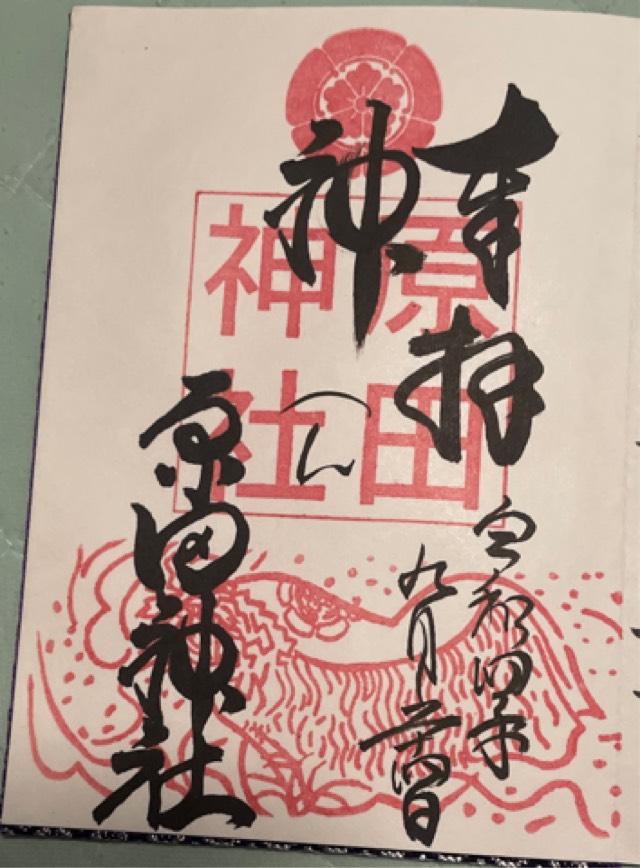 奉拝
令和四年
九月二十四日
神
へん
原田神社
原田
神社